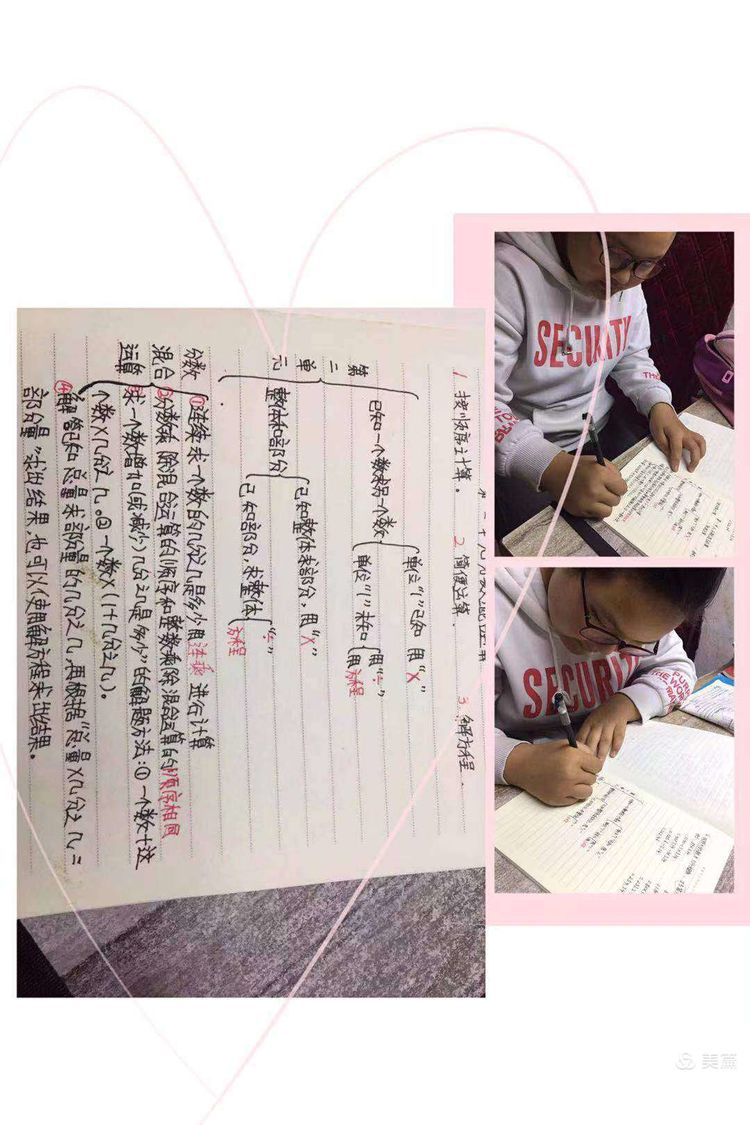 1. 按顺序计算。 2. 简便运算. 3. 解方程.
单位“1”已知 用“×”
已知一个数求另一个数
单位“1”未知 用“÷”
用方程
第二单元
已知整体求部分，用“×”
整体和部分
已知部分，求整体 “÷”
方程
分数混合运算
①连续求一个数的几分之几是多少用连乘进行计算
②分数乘除混合运算的顺序和整数乘除混合运算的顺序相同
③“求一个数增加（或减少）几分之几是多少”的解题方法：①一个数＋这
个数×几分之几。②一个数×（1＋几分之几）。
④解答已知总量求部分量的几分之几，再根据“总量×几分之几＝
部分量”求出结果，也可以使用解方程求出结果。
SECURITY
SECURIT
THE WOR
美篇